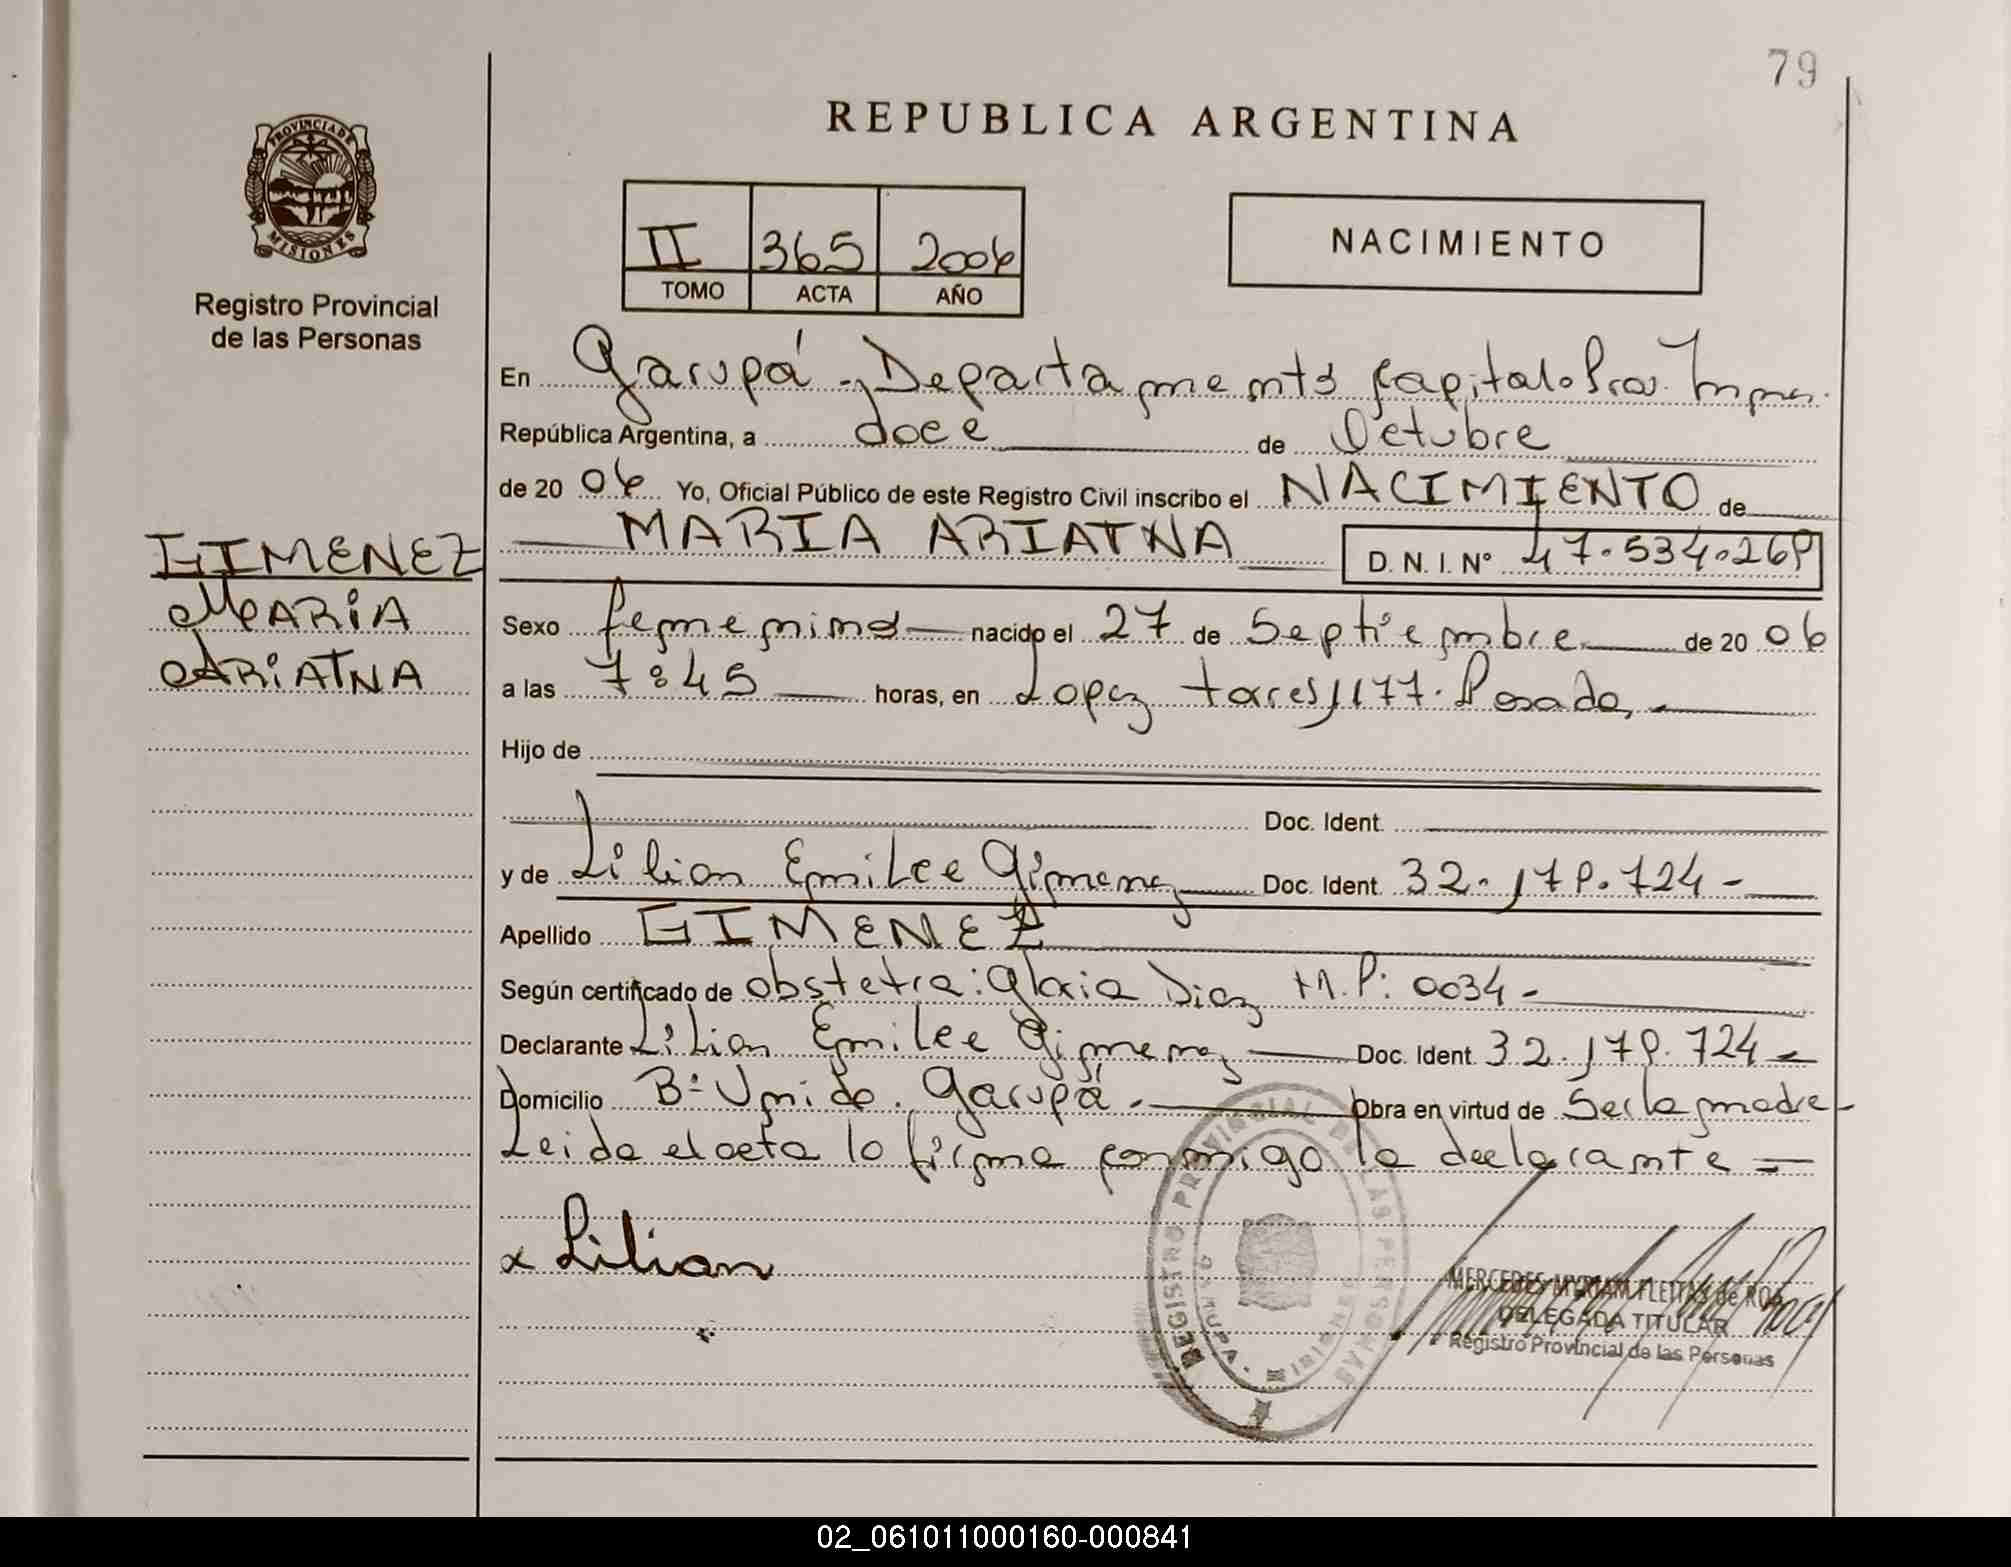 79
REPUBLICA ARGENTINA
PROVINCIA DE
MISIONES
Registro Provincial
de las Personas
II 365 2006
TOMO ACTA AÑO
NACIMIENTO
En Garupá, Departamento Capital
República Argentina, a doce de Octubre
de 20 06 Yo, Oficial Público de este Registro Civil inscribo el NACIMIENTO de
MARIA ARIATNA D. N. I. Nº 47.534.269
GIMENEZ
MARIA
ARIATNA
Sexo femenino nacido el 27 de Septiembre de 20 06
a las 7:45 horas, en Lopez torres 1177. Posadas
Hijo de
Doc. Ident.
y de Lilian Emilce Gimenez Doc. Ident. 32.179.724-
Apellido GIMENEZ
Según certificado de obstetra: Gloria Diaz M.P: 0034-
Declarante Lilian Emilce Gimenez Doc. Ident. 32.179.724-
Domicilio Bº Unido. Garupá. Obra en virtud de Ser la madre
Leida el acta la firma conmigo la declarante
x Lilian
REGISTRO PROVINCIAL DE LAS PERSONAS
GARUPA - MISIONES
MERCEDES MYRIAM FLEITAS de ROA
DELEGADA TITULAR
Registro Provincial de las Personas
02_061011000160-000841